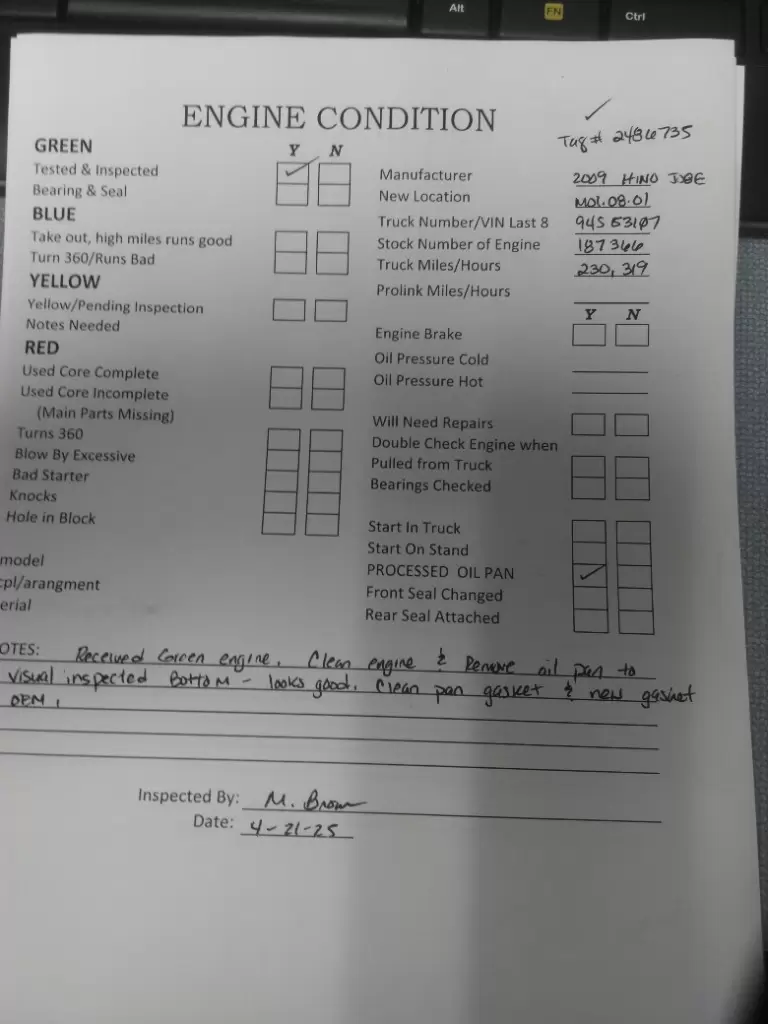 Alt
FN
Ctrl
ENGINE CONDITION
Tag# 2486735
GREEN
Y N
Tested & Inspected
Bearing & Seal
BLUE
Take out, high miles runs good
Turn 360/Runs Bad
YELLOW
Yellow/Pending Inspection
Notes Needed
RED
Used Core Complete
Used Core Incomplete
(Main Parts Missing)
Turns 360
Blow By Excessive
Bad Starter
Knocks
Hole in Block
model
cpl/arangment
erial
Manufacturer 2009 HINO J08E
New Location M01.08.01
Truck Number/VIN Last 8 94S53107
Stock Number of Engine 187366
Truck Miles/Hours 230,319
Prolink Miles/Hours
Y N
Engine Brake
Oil Pressure Cold
Oil Pressure Hot
Will Need Repairs
Double Check Engine when
Pulled from Truck
Bearings Checked
Start In Truck
Start On Stand
PROCESSED OIL PAN
Front Seal Changed
Rear Seal Attached
OTES: Received Green engine. Clean engine & Remove oil pan to
visual inspected Bottom - looks good. Clean pan gasket & new gasket
OEM.
Inspected By: M. Brown
Date: 4-21-25